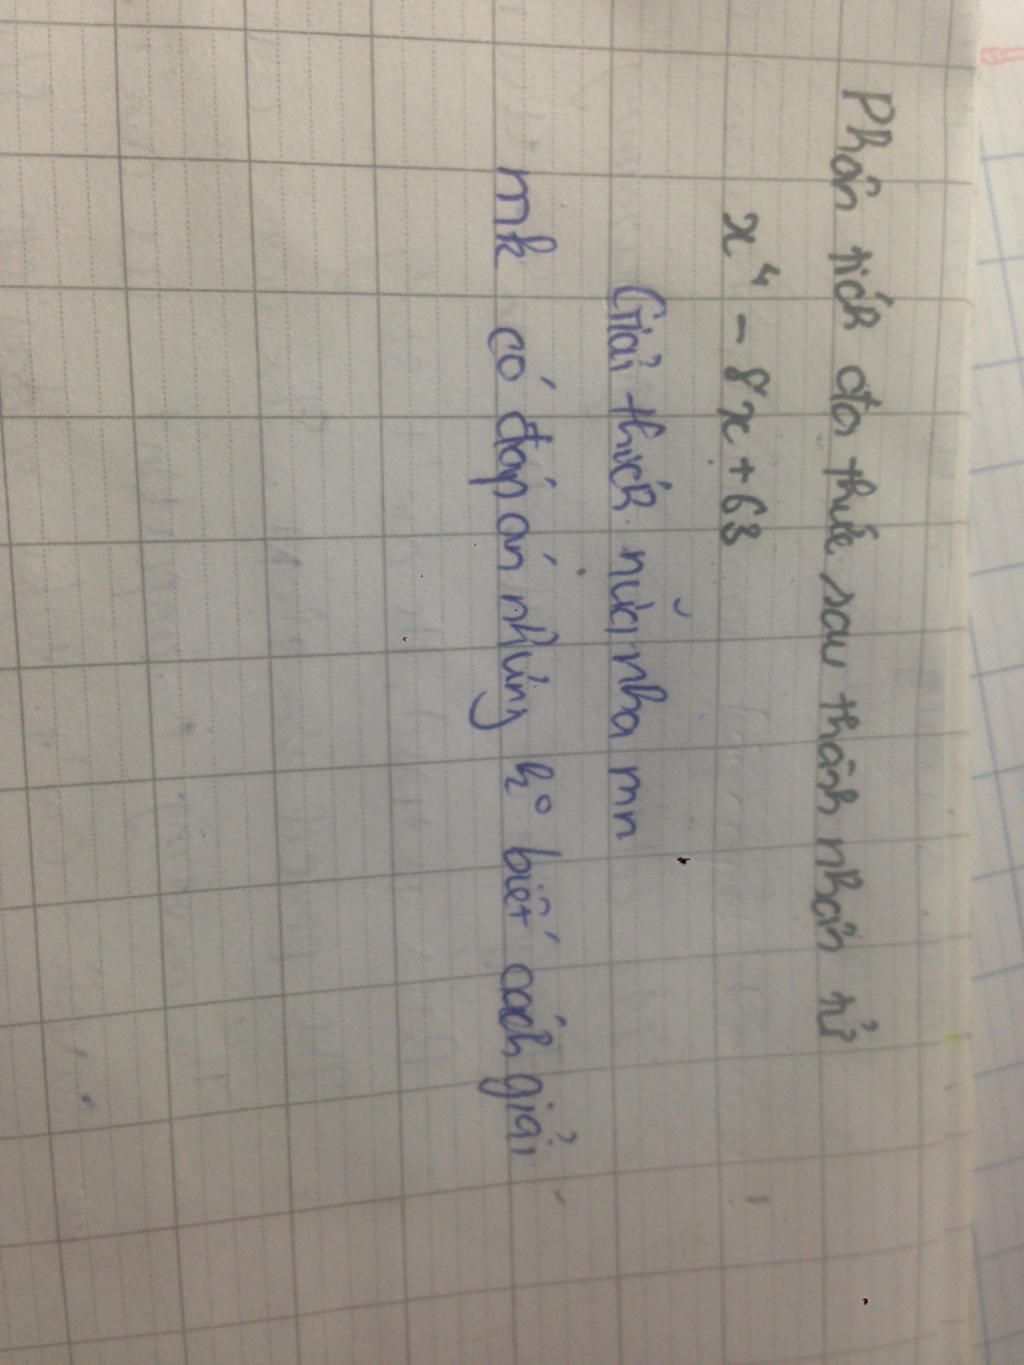 Phân tích đa thức sau thành nhân tử
x⁴ - 8x + 63
Giải thích nữa nha mn
mk có đáp án nhưng k° biết cách giải